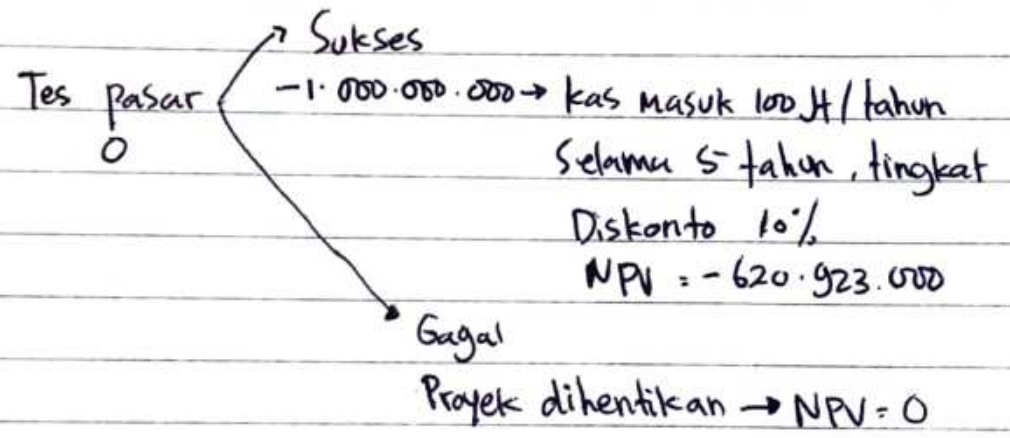 Sukses
Tes pasar -1.000.000.000 → kas masuk 100 Jt/tahun
0
Selama 5 tahun, tingkat
Diskonto 10%
NPV = -620.923.000
Gagal
Proyek dihentikan → NPV = 0